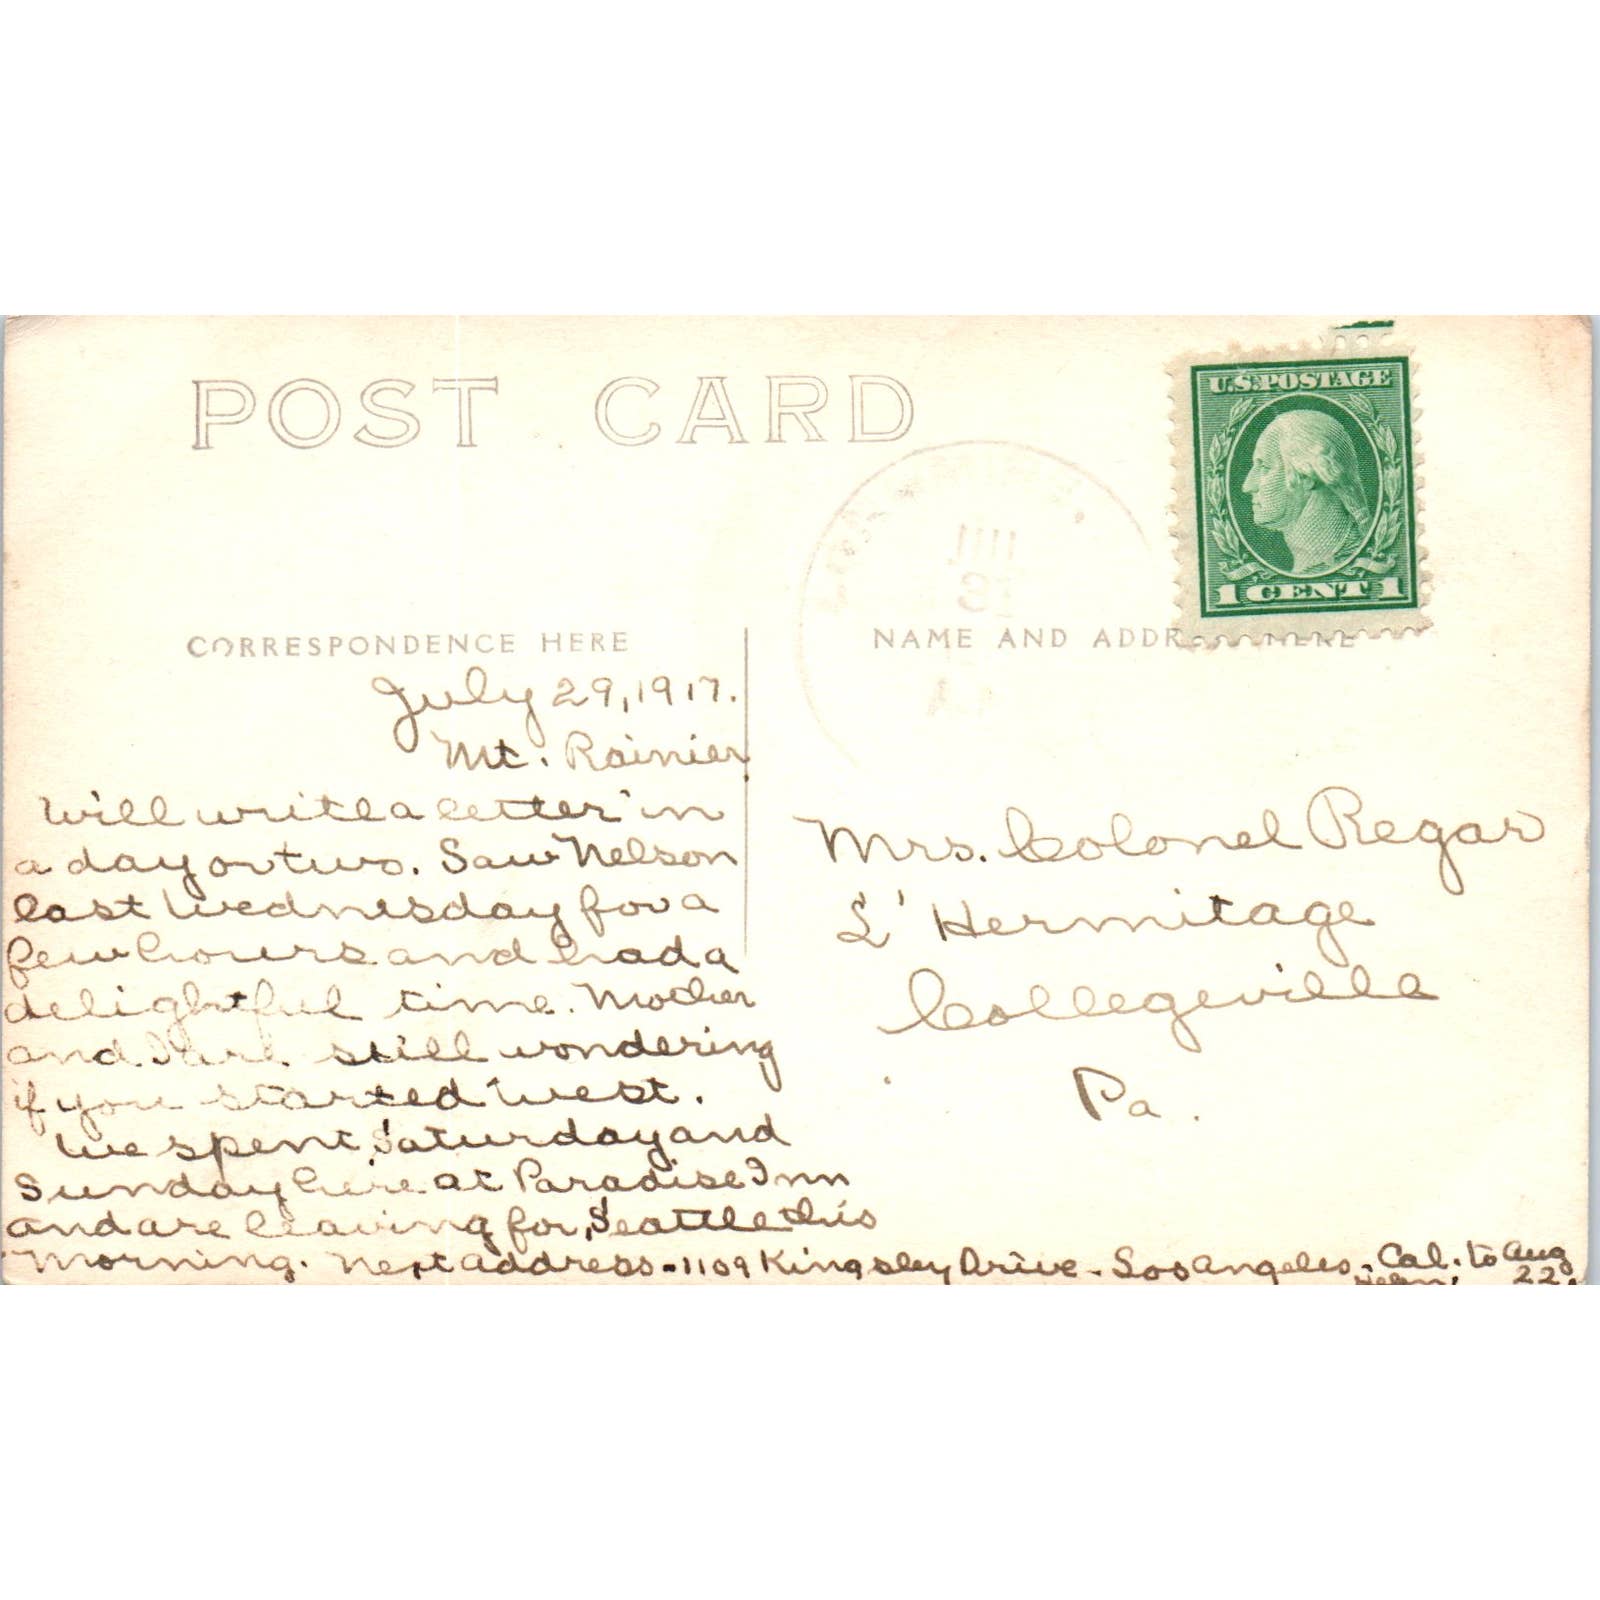 POST CARD
U.S. POSTAGE
1 CENT 1
CORRESPONDENCE HERE
NAME AND ADDRESS HERE
July 29, 1917.
Mt. Rainier
Will write a letter in
a day or two. Saw Nelson
last Wednesday for a
few hours and had a
delightful time. Mother
and I are still wondering
if you started West.
We spent Saturday and
Sunday here at Paradise Inn
and are leaving for Seattle this
morning. Next address - 1109 Kingsley Drive - Los Angeles, Cal. to Aug
22.
Helen.
Mrs. Colonel Regar
L'Hermitage
Collegeville
Pa.